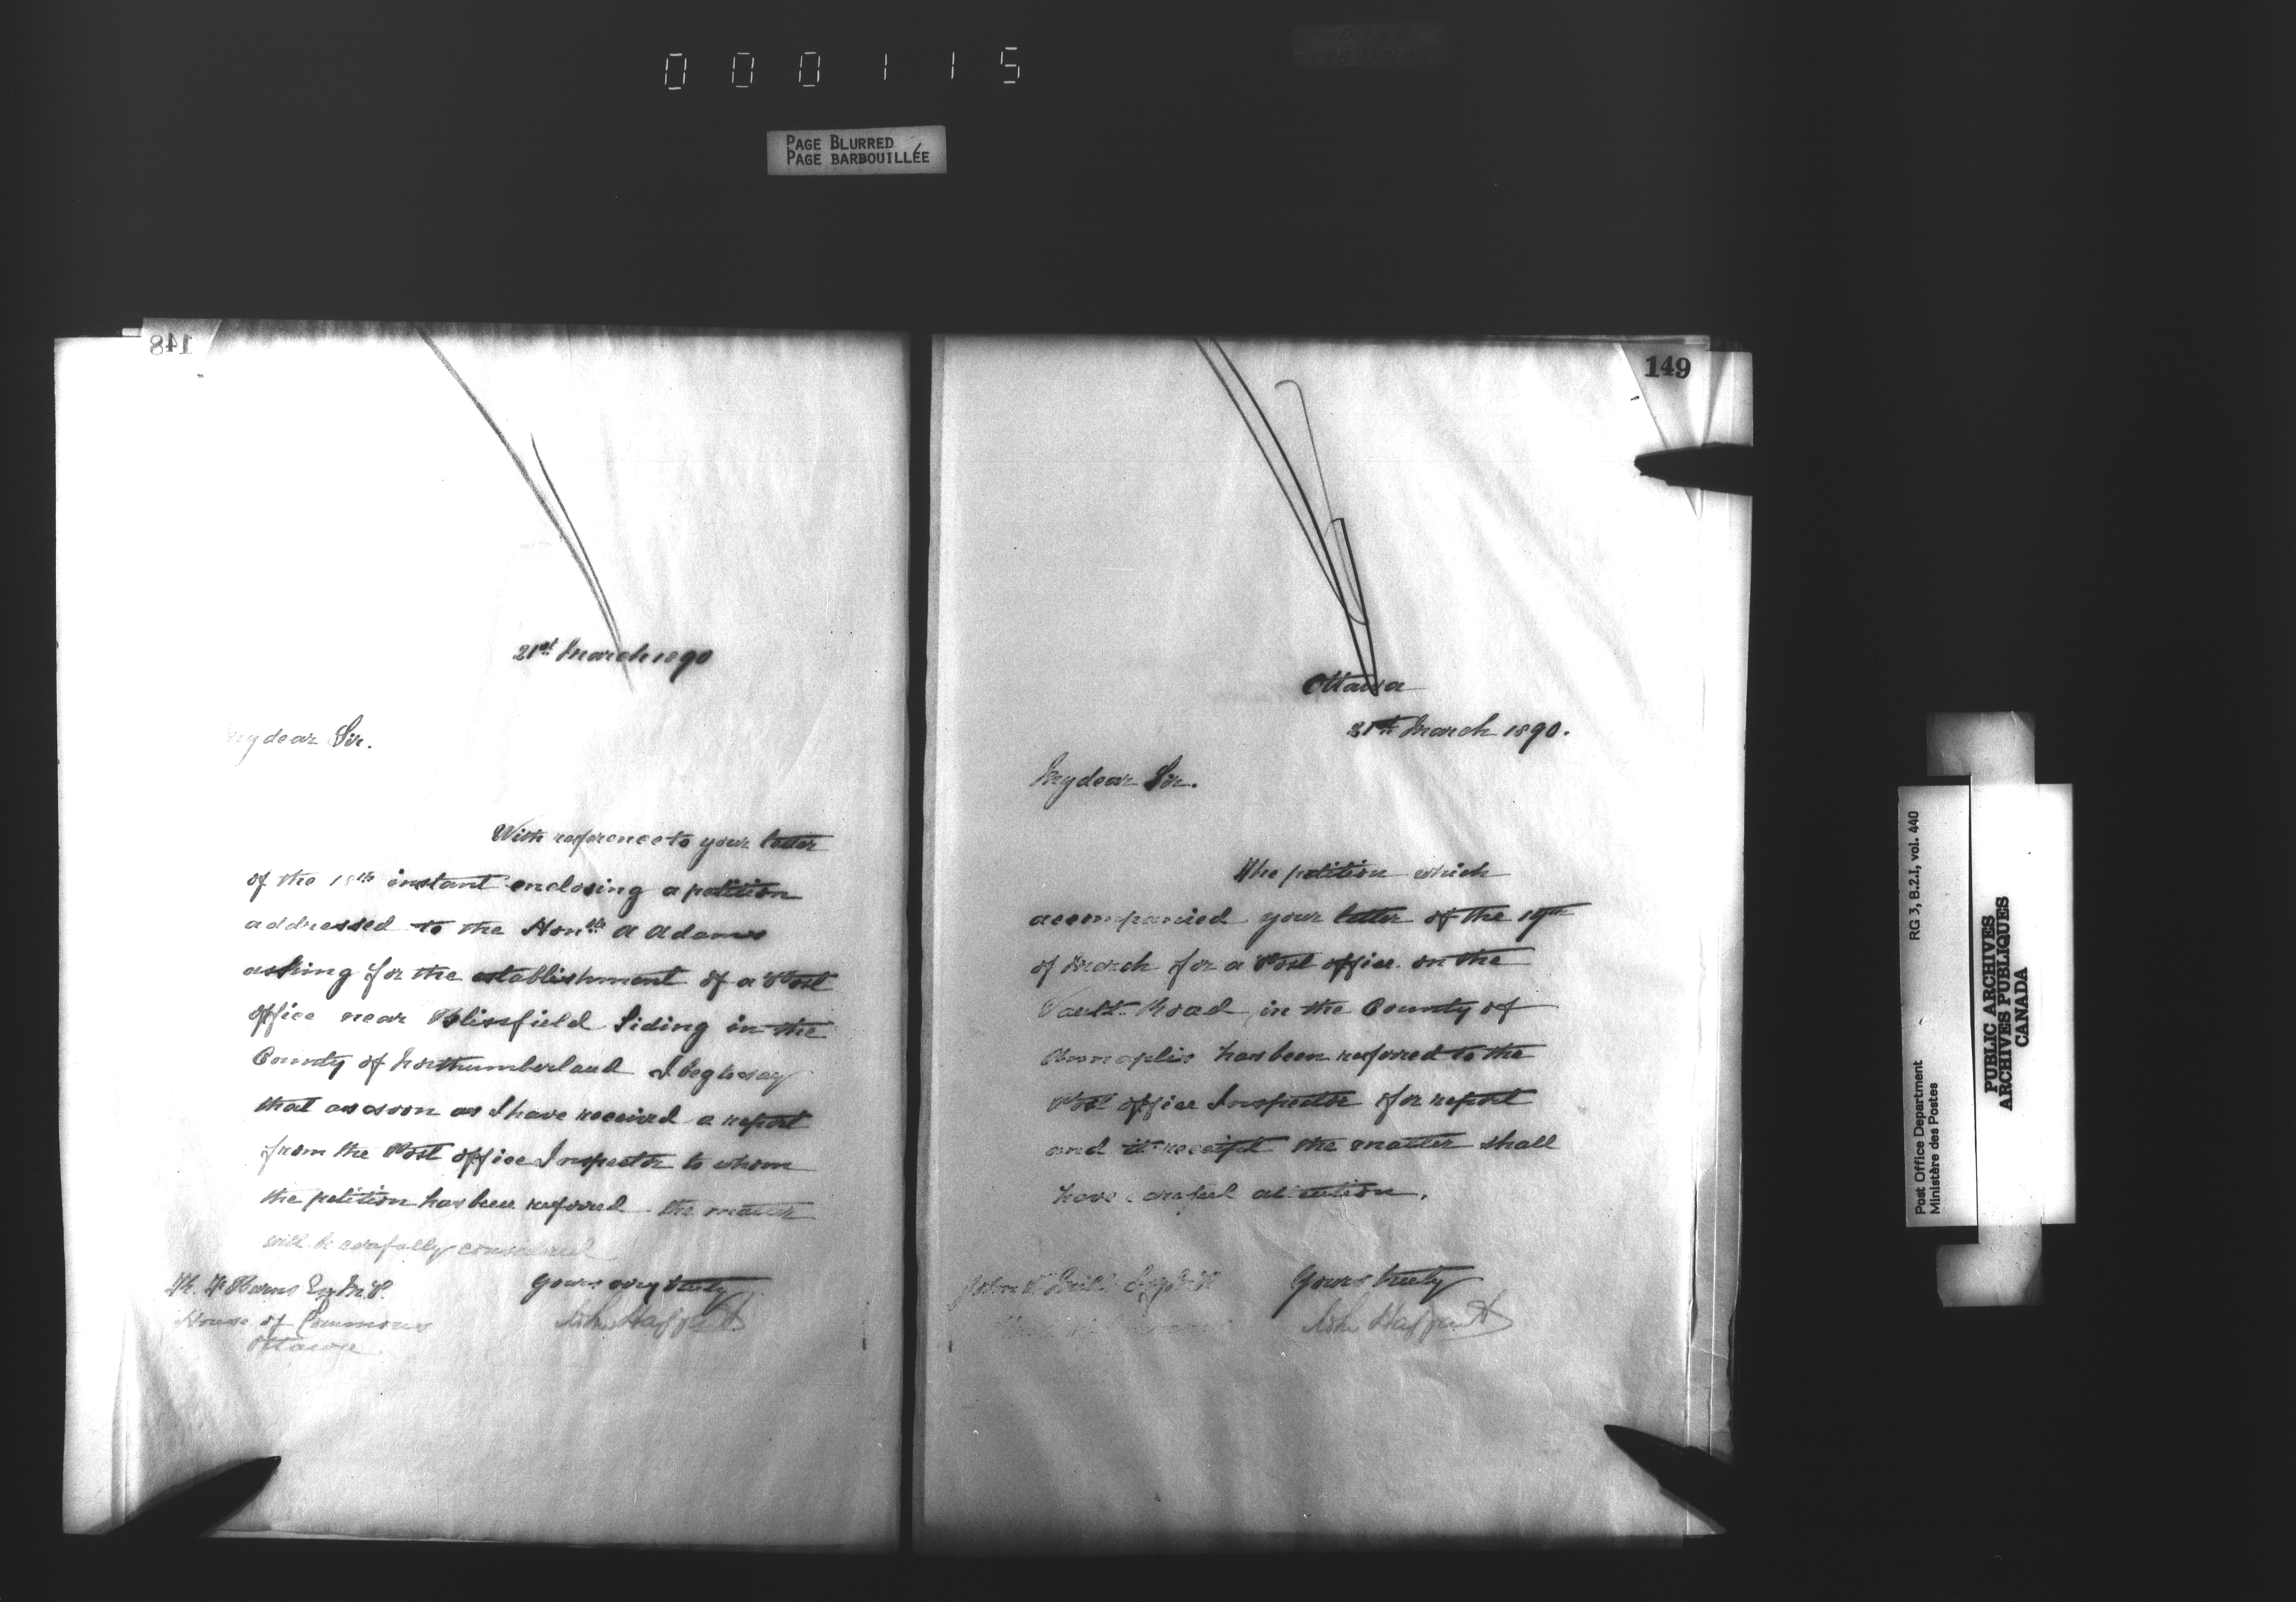 000115
PAGE BLURRED
PAGE BARBOUILLÉE
148
21st March 1890
My dear Sir.
With reference to your letter
of the 18th instant enclosing a petition
addressed to the Honble A Adams
asking for the establishment of a Post
office near Blissfield Siding in the
County of Northumberland I beg to say
that as soon as I have received a report
from the Post office Inspector to whom
the petition has been referred the matter
will be carefully considered
Yours very truly
John Haggart
Burns Esq M.P.
House of Commons
Ottawa
149
Ottawa
21st March 1890.
My dear Sir.
The petition which
accompanied your letter of the 19th
of March for a Post office on the
Vault Road in the County of
Annapolis has been referred to the
Post office Inspector for report
and it receipt the matter shall
have careful attention.
Yours truly
John Haggart
John B Mills Esq M.P.
RG 3, B.2.I, vol. 440
Post Office Department
Ministère des Postes
PUBLIC ARCHIVES
ARCHIVES PUBLIQUES
CANADA